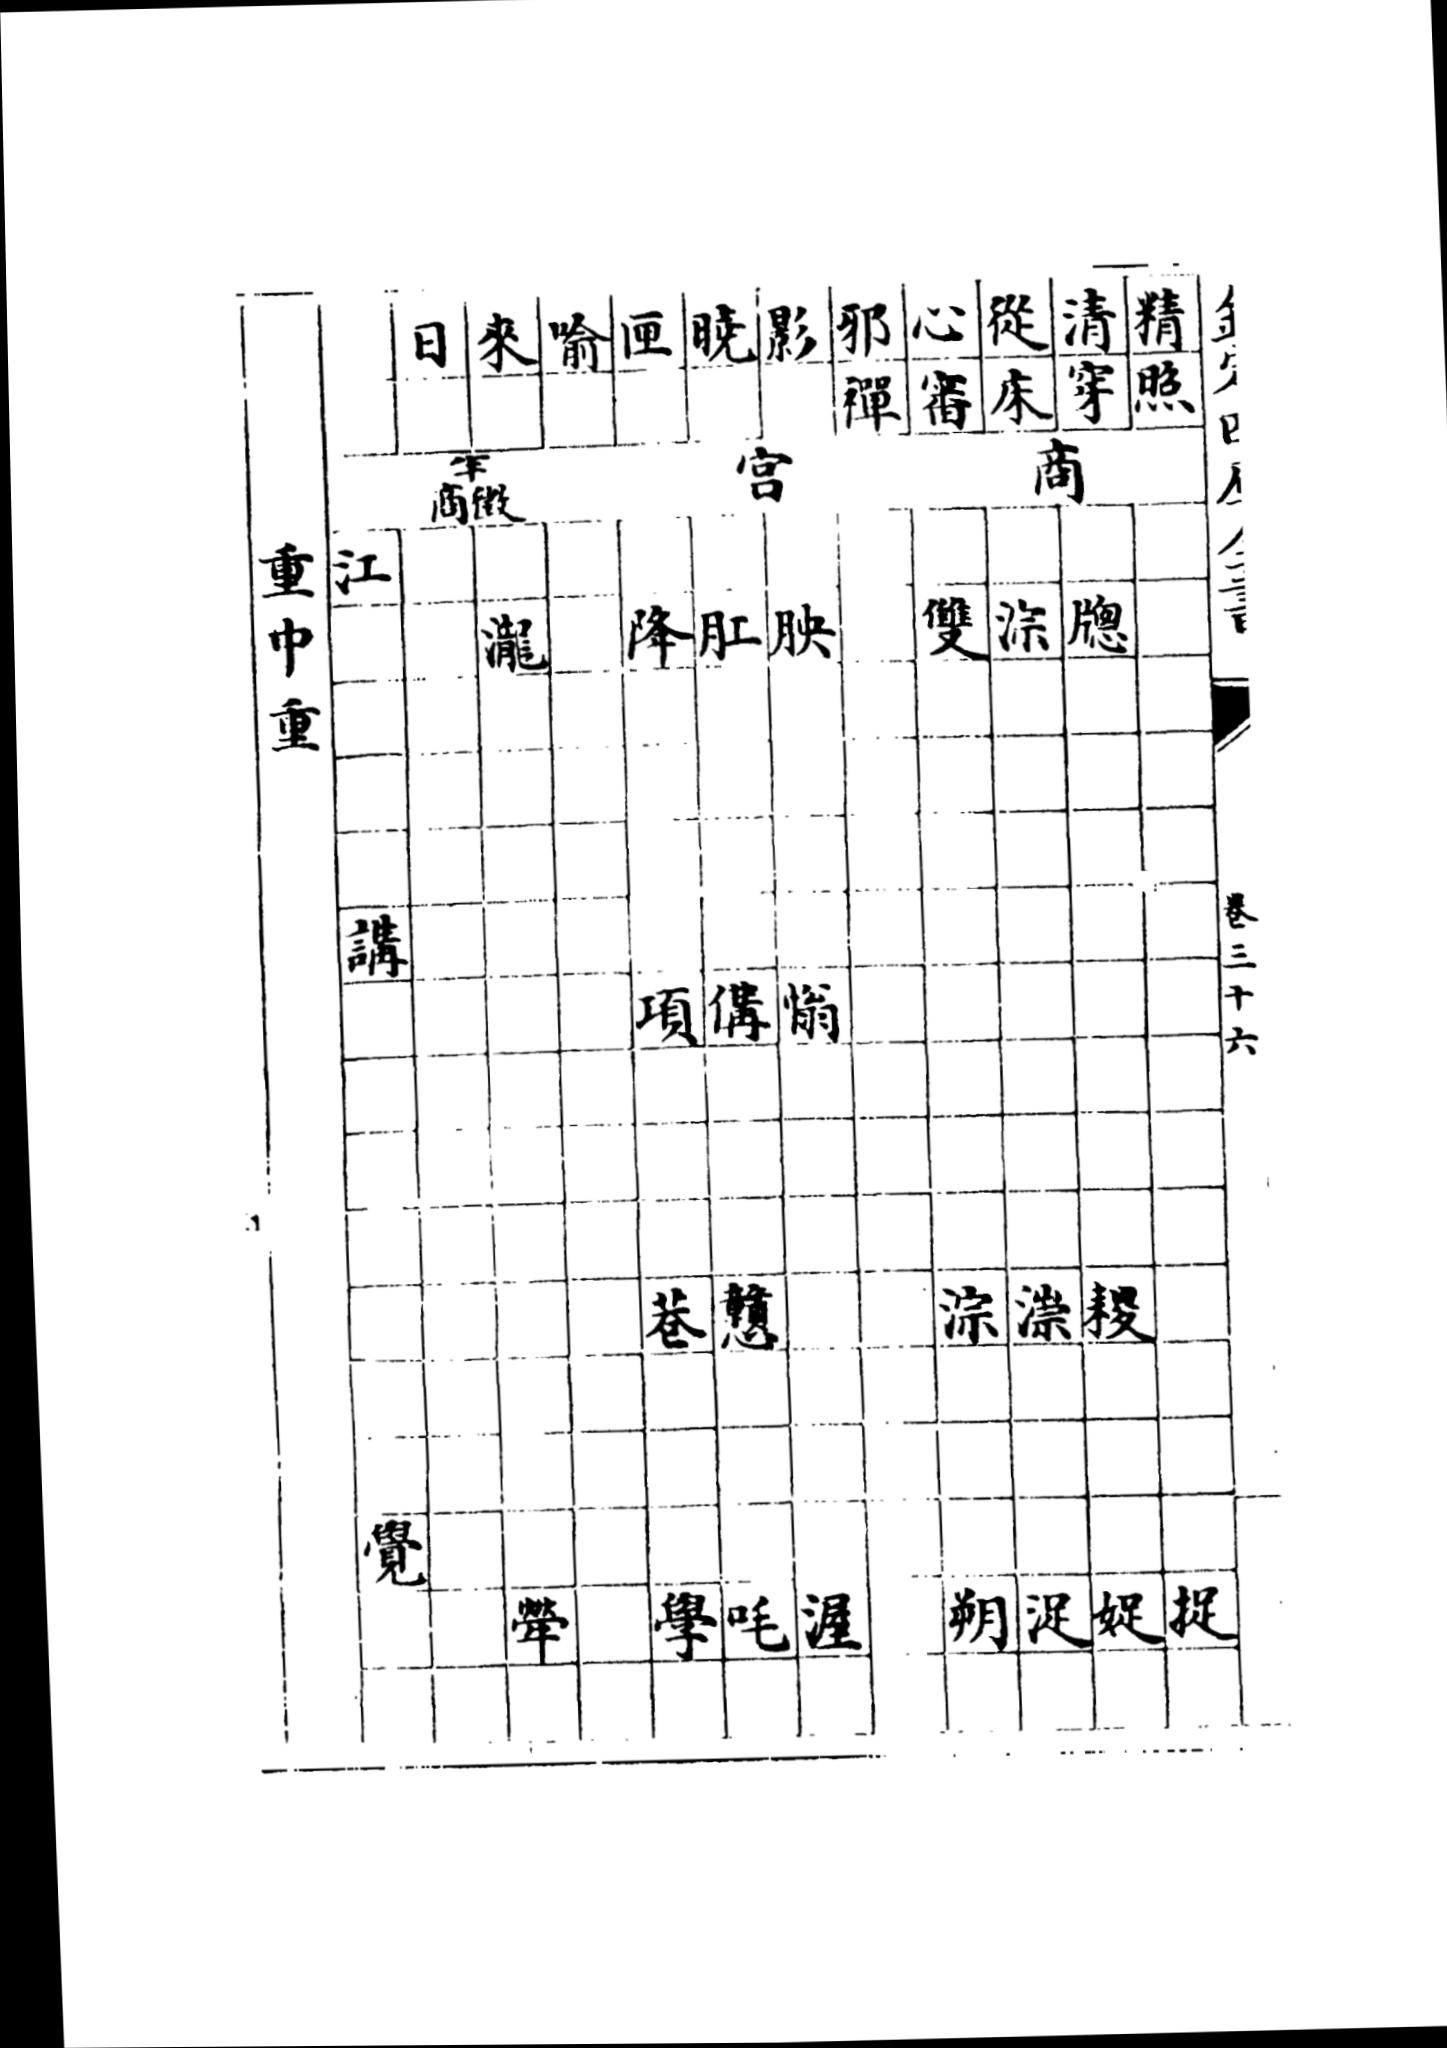 欽定四庫全書
卷三十六
精清從心邪影曉匣喻來日
照穿床審禪
商 宮 半徵商
江
牎淙雙胦肛降瀧
講
慃備項
稯漴淙戇巷
覺
捉娖浞朔渥吒學犖
重中重